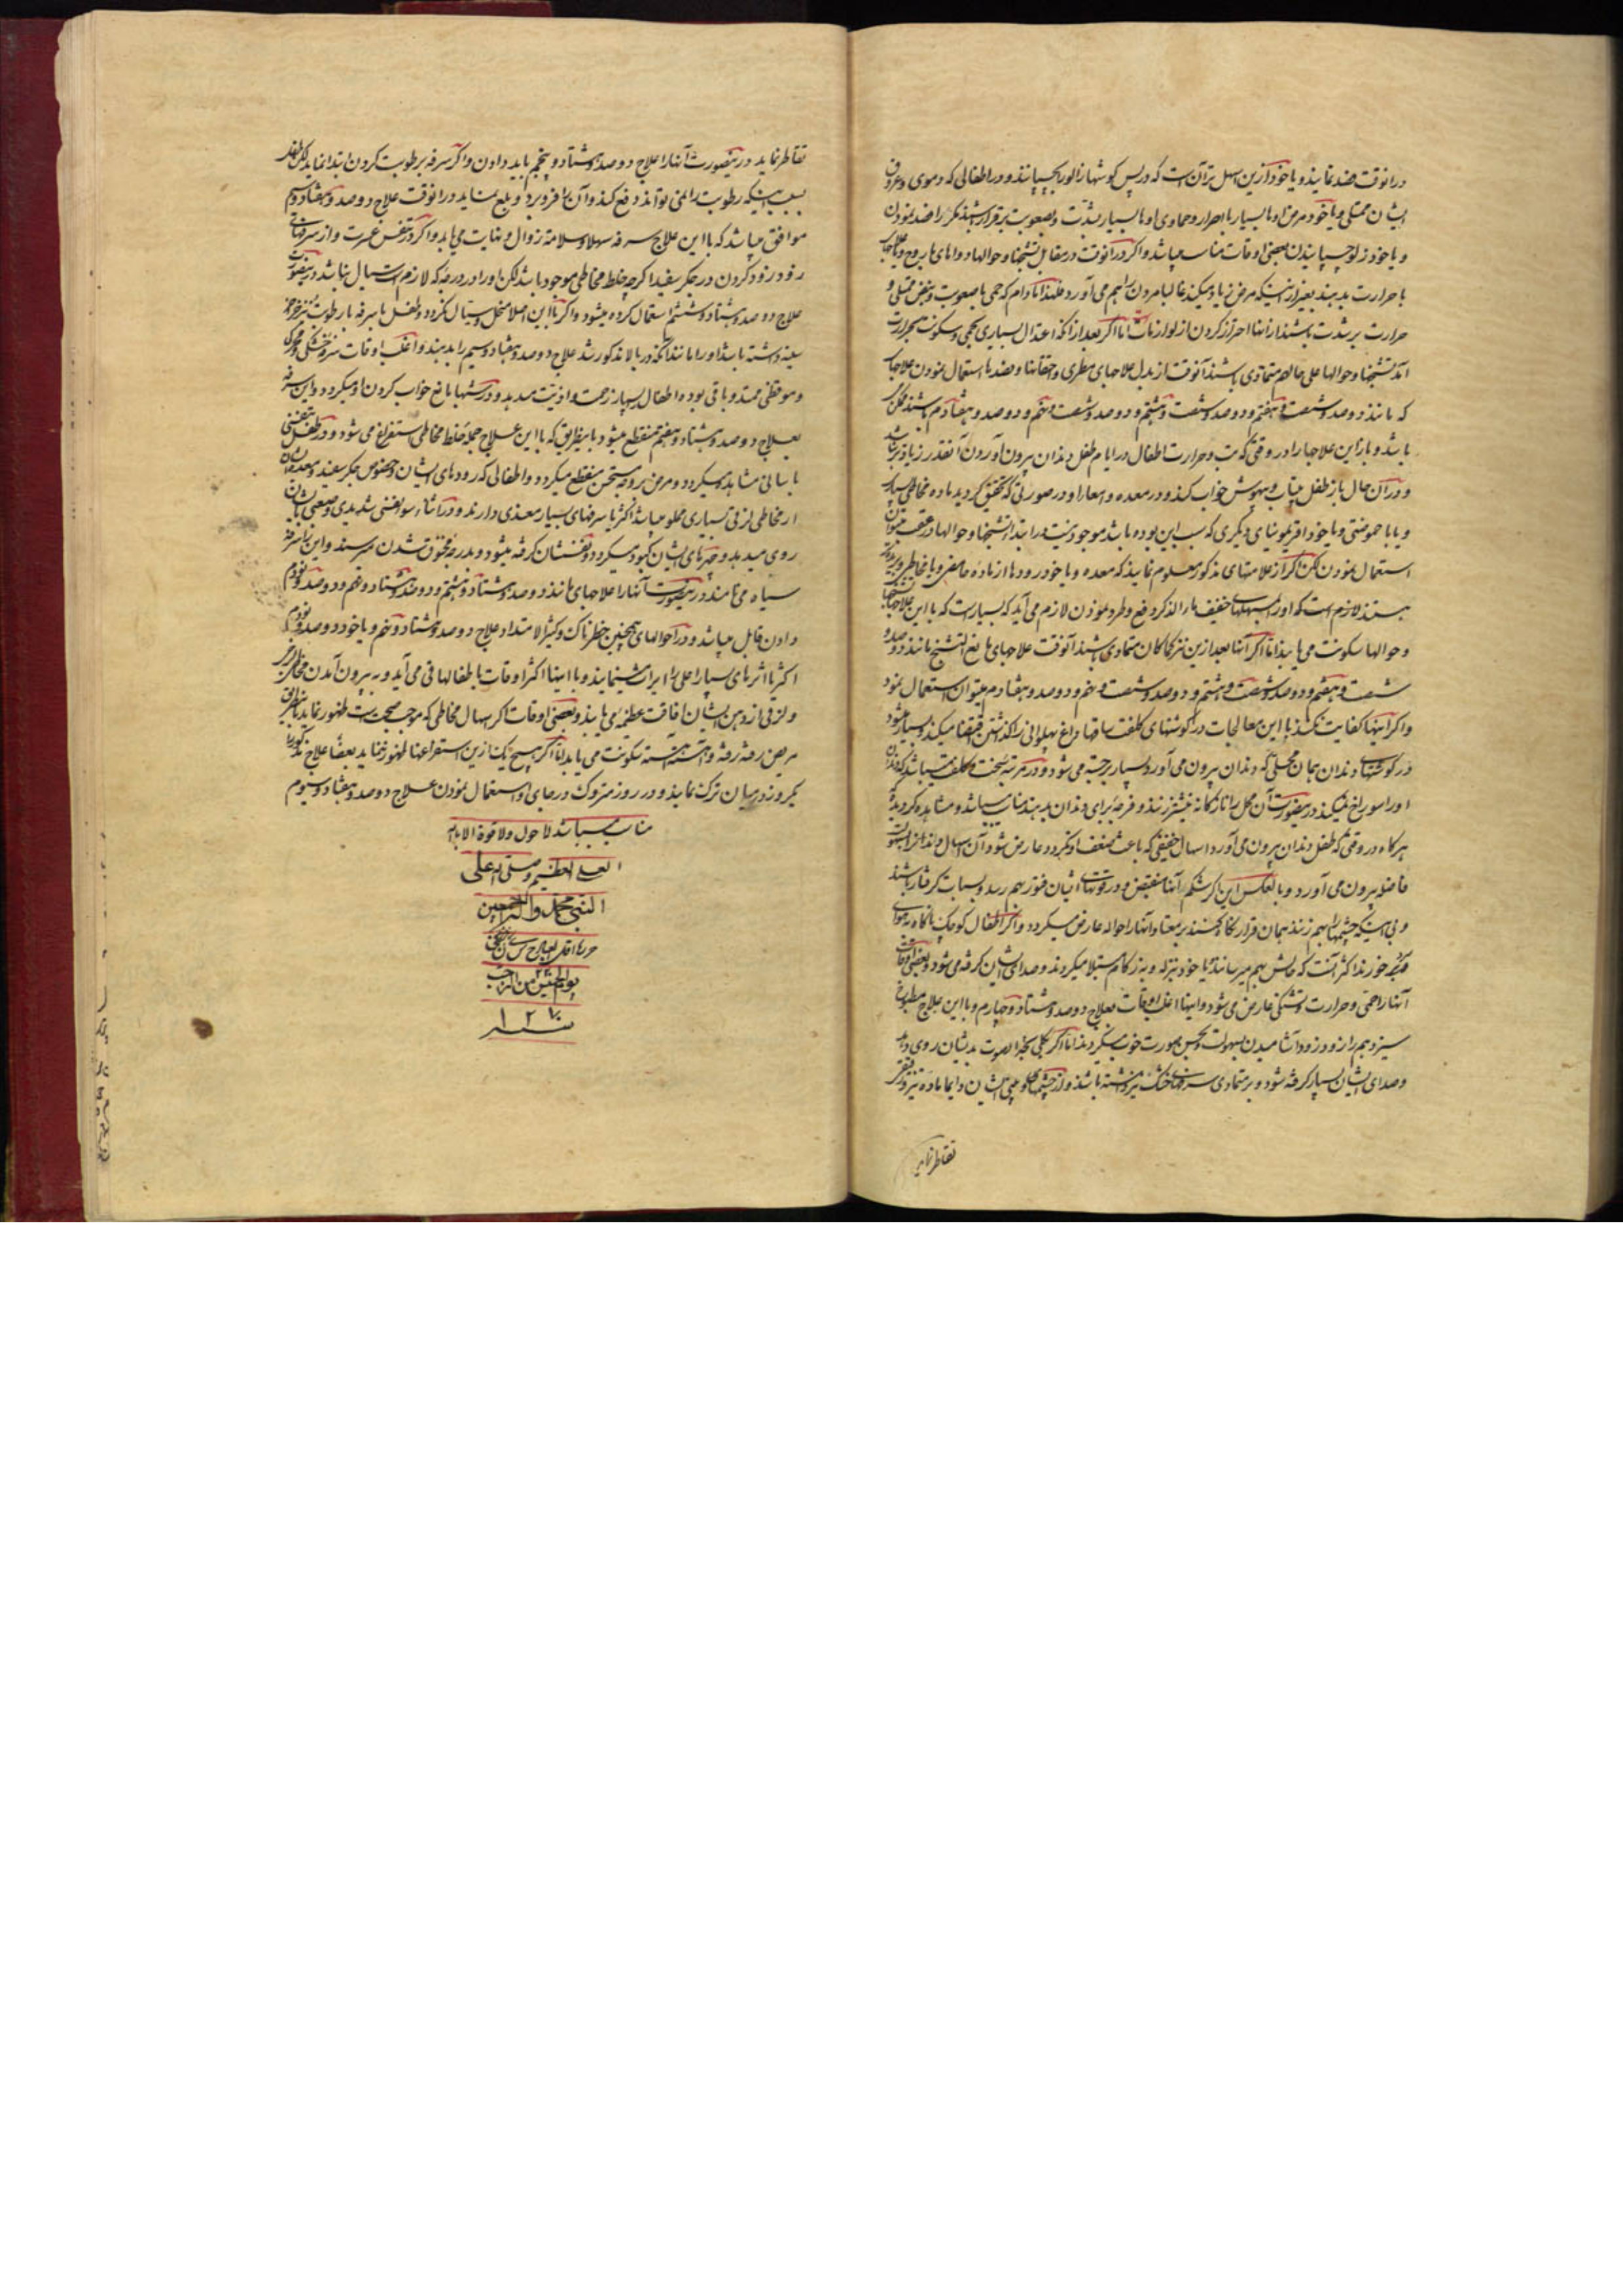 درانوقت فصد نمایند و یا خود ازین اسهل تر آن است که در پس کوشها زالو بچسپانند و در اطفالی که دموی و عروق
ایشان ممتلی و یا خود مرض اوها بسیار با احرار و حمای اوها بسیار بشدّت و بصعوبت برقرار باشند مکرّر فصد نمودن
و یا خود زلو چسپانیدن بعضی اوقات مناسب میباشد و اکر درانوقت در مقابل تشنجها و حوالها دواهای
با حرارت بدهند بغیر از اینکه مرض زیاد میکند غالبا مردن را هم می آورد فلهذا مادام که حمی با صعوبت و نبض ممتلی و
حرارت بر شدت باشند از اینها احتراز کردن از لوازمات اما اکر بعد از آنکه اعتدال بسیاری بحمی و سکونت بحرارت
آمد تشنجها و حوالها علی حالهم متمادی باشند آنوقت از بدل علاجهای مطری و حقنها و فصدها استعمال نمودن علاجهای
که مانند دوصد و شصت و هفتم و دوصد و شصت و هشتم و دوصد و شصت و نهم و دوصد و هفتادم باشند ممکن
باشد و باز این علاجها را در وقتی که تب و حرارت اطفال در ایام طفل دندان بیرون آوردن آنقدر زیادتر نباشد
و در آن حال باز طفل بیتاب و بیهوش خواب کند و در معده و امعاء او در صورتی که تحقیق کردید ماده مخاطی بسیار
و یا با حموضتی و یا خود اقریمونیای دیکری که سبب این بوده باشد موجود نیست در ابتدا تشنجها و حوالها در عقب میتوان
استعمال نمودن لکن اکر از علامتهای مذکور معلوم نمایند که معده و یا خود رودها از ماده حامضی و یا مخاطی
هستند لازم است که اوّل بمسهلهای خفیف مار الذکر دفع و طرد نمودن لازم می آید که بسیار است که با این علاجها
و حوالها سکونت می یابند اما اکر آنها بعد ازین نیز کماکان متمادی باشند آنوقت علاجهای مانع التشنج مانند دوصد و
شصت و هفتم و دوصد و شصت و هشتم و دوصد و شصت و نهم و دوصد و هفتادم میتوان استعمال نمود
واکر اینها کفایت نکنند با این معالجات در کوشتهای کلفت ساقها
در کوشتهای دندان همان محلی که دندان بیرون می آورد بسیار برجسته می شود و در مرتبه سخت و کلفت میباشد که دندان
او را سوراخ نمیکند در ینصورت آن محل را تازکانه نیشتر زنند و فرجه برای دندان بدهند مناسب میباشد و مشاهده کردیده
هر کاه در وقتی که طفل دندان بیرون می آورد اسهال خفیفی که باعث ضعف او نکردد عارض شود آن اسهال دندانرا بسهولت
فاضله بیرون می آورد و بالعکس این اکر شکم آنها منقبض و در قوتهای ایشان فتور بهم رسد و بسبات کرفتار باشند
و بی اینکه چشمهارا بهم زنند بهمان قرار نکاه کنند بر معتاد آنها را حواله عارض میکردد و اکر اطفال کوچک ناکاه به هوای
سرد خورند اکثر آنست که چالش بهم میرسانند یا خود بنزله و بزکام مبتلا میکردند و صدای ایشان کرفته می شود و بعضی اوقات
آنها را حمّی و حرارت و تشنکی عارض می شود و اینها اغلب اوقات بعلاج دوصد و هشتاد و چهارم و با این علاج مطبوخ
سیزدهم را زود زود آشامیدن بسهولت و بحسن صورت خوب میکردند اما اکر کلی بیخبر الصوت بدیشان روی دهد
و صدای ایشان بسیار کرفته شود و بر متمادی سرفهای خشک نیز داشته باشند و از چشمها و بینی ایشان دایما ماده تیز و
تقاطر نماید
تقاطر نماید در ینصورت آنها را علاج دوصد و هشتاد و پنجم باید دادن واکر سرفه برطوبت کردن ابتدا نماید لکن طفل
بسبب اینکه رطوبت را نمی تواند دفع کند و آن را فرو برد و بلع نماید درانوقت علاج دوصد و هفتاد و سیم
موافق میباشد که با این علاج سرفه سهلا و سلامة زوال و نهایت می یابد واکر در تنفس عسرت و از سرفهای
زود زود کردن در جکر سفید اکر چه خلط مخاطی موجود باشد لکن او را در درجه که لازم است اسهال نباشد در ینصورت
علاج دوصد و هشتاد و ششم استعمال کرده میشود واکر با این اصلا منحل و سیّال نکردد و طفل با سرفه با رطوبت
سینه داشته باشد او را مانند آنکه در بالا مذکور شد علاج دوصد و هفتاد و سیم را بدهند و اغلب اوقات سرفه خشکی و محرکی
و موقظی ممتد و باقی بوده اطفال را بسیار زحمت و اذیّت میدهد و در شبها مانع خواب کردن او میکردد و این سرفه
بعلاج دوصد و هشتاد و هفتم منقطع میشود باینطریق که با این علاج جمله خلط مخاطی استفراغ می شود و در طفل تنفسی
باسانی مشاهده میکردد و مرض بر وجه مستحسن منقطع میکردد و اطفالی که رودهای ایشان و خصوص جکر سفید و معده ایشان
از مخاطی لزقی بسیاری مملو میباشد اکثر با سرفهای بسیار معذی دارند و در اثناء سوء تنفسی شدیدی و صعبی بایشان
روی میدهد و چهرهای ایشان کبود میکردد و تنفسشان کرفته میشود و بدرجه مخنوق شدن میرسند و این را سرفه
سیاه می نامند در ینصورت آنها را علاجهای مانند دوصد و هشتاد و هشتم و دوصد و هشتاد و نهم و دوصد و نودم
دادن قابل میباشد و در احوالهای همچنین خطرناک و کثیر الامتداد علاج دوصد و هشتاد و نهم و یا خود دوصد و نودم
اکثریا اثرهای بسیار اعلی را ایراث مینمایند و با اینها اکثر اوقات با طفالها قی می آید و به بیرون آمدن مخاطی
و لزقی از دهن ایشان افاقت عظیمه می یابند و بعضی اوقات اکر اسهال مخاطی که موجب صحّت است ظهور نماید باینطریق
مریض رفته رفته و آهسته آهسته سکونت می یابد امّا اکر هیچ یک ازین استفراغها ظهور ننماید بعضا علاج مذکور را
یکروز در میان ترک نمایند و در روز متروک در جای او استعمال نمودن علاج دوصد و هفتاد و سیوم
مناسب میباشد لاحول ولا قوة الا بالله
العلی العظیم و صلی الله علی
النبی محمّد و آله اجمعین
یوم الاثنین من الرجب
سنه ۱۲۷۰